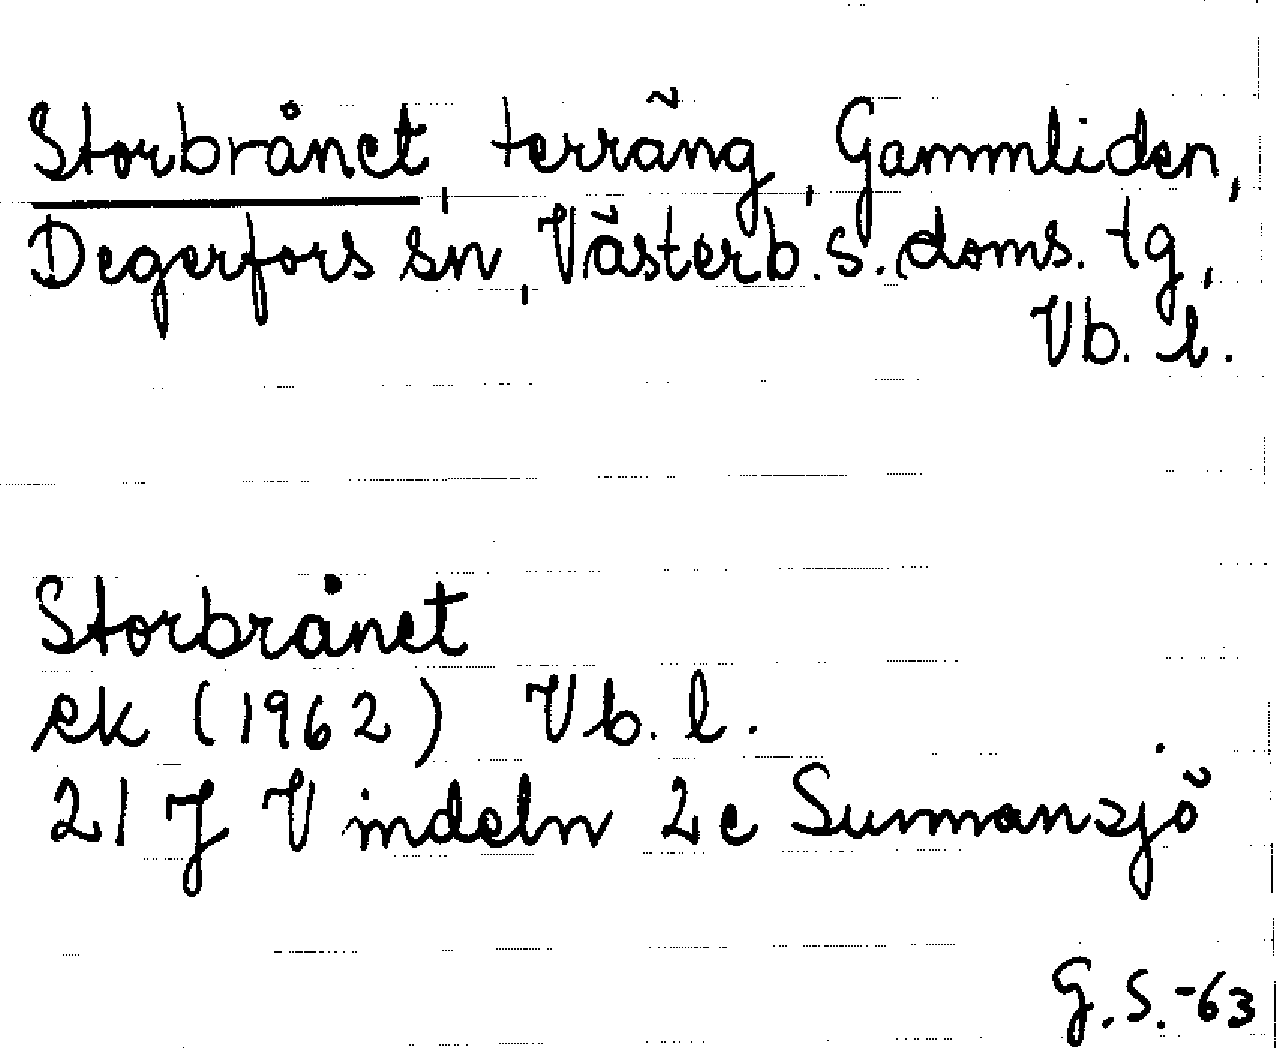 Storbrånet, terräng, Gammliden,
Degerfors sn, Västerb. s. doms. tg,
Vb. l.
Storbrånet
ek (1962) Vb. l.
21 J Vindeln 2 c Surmansjö
G. S. -63